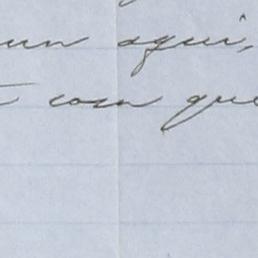 aqui,
com que